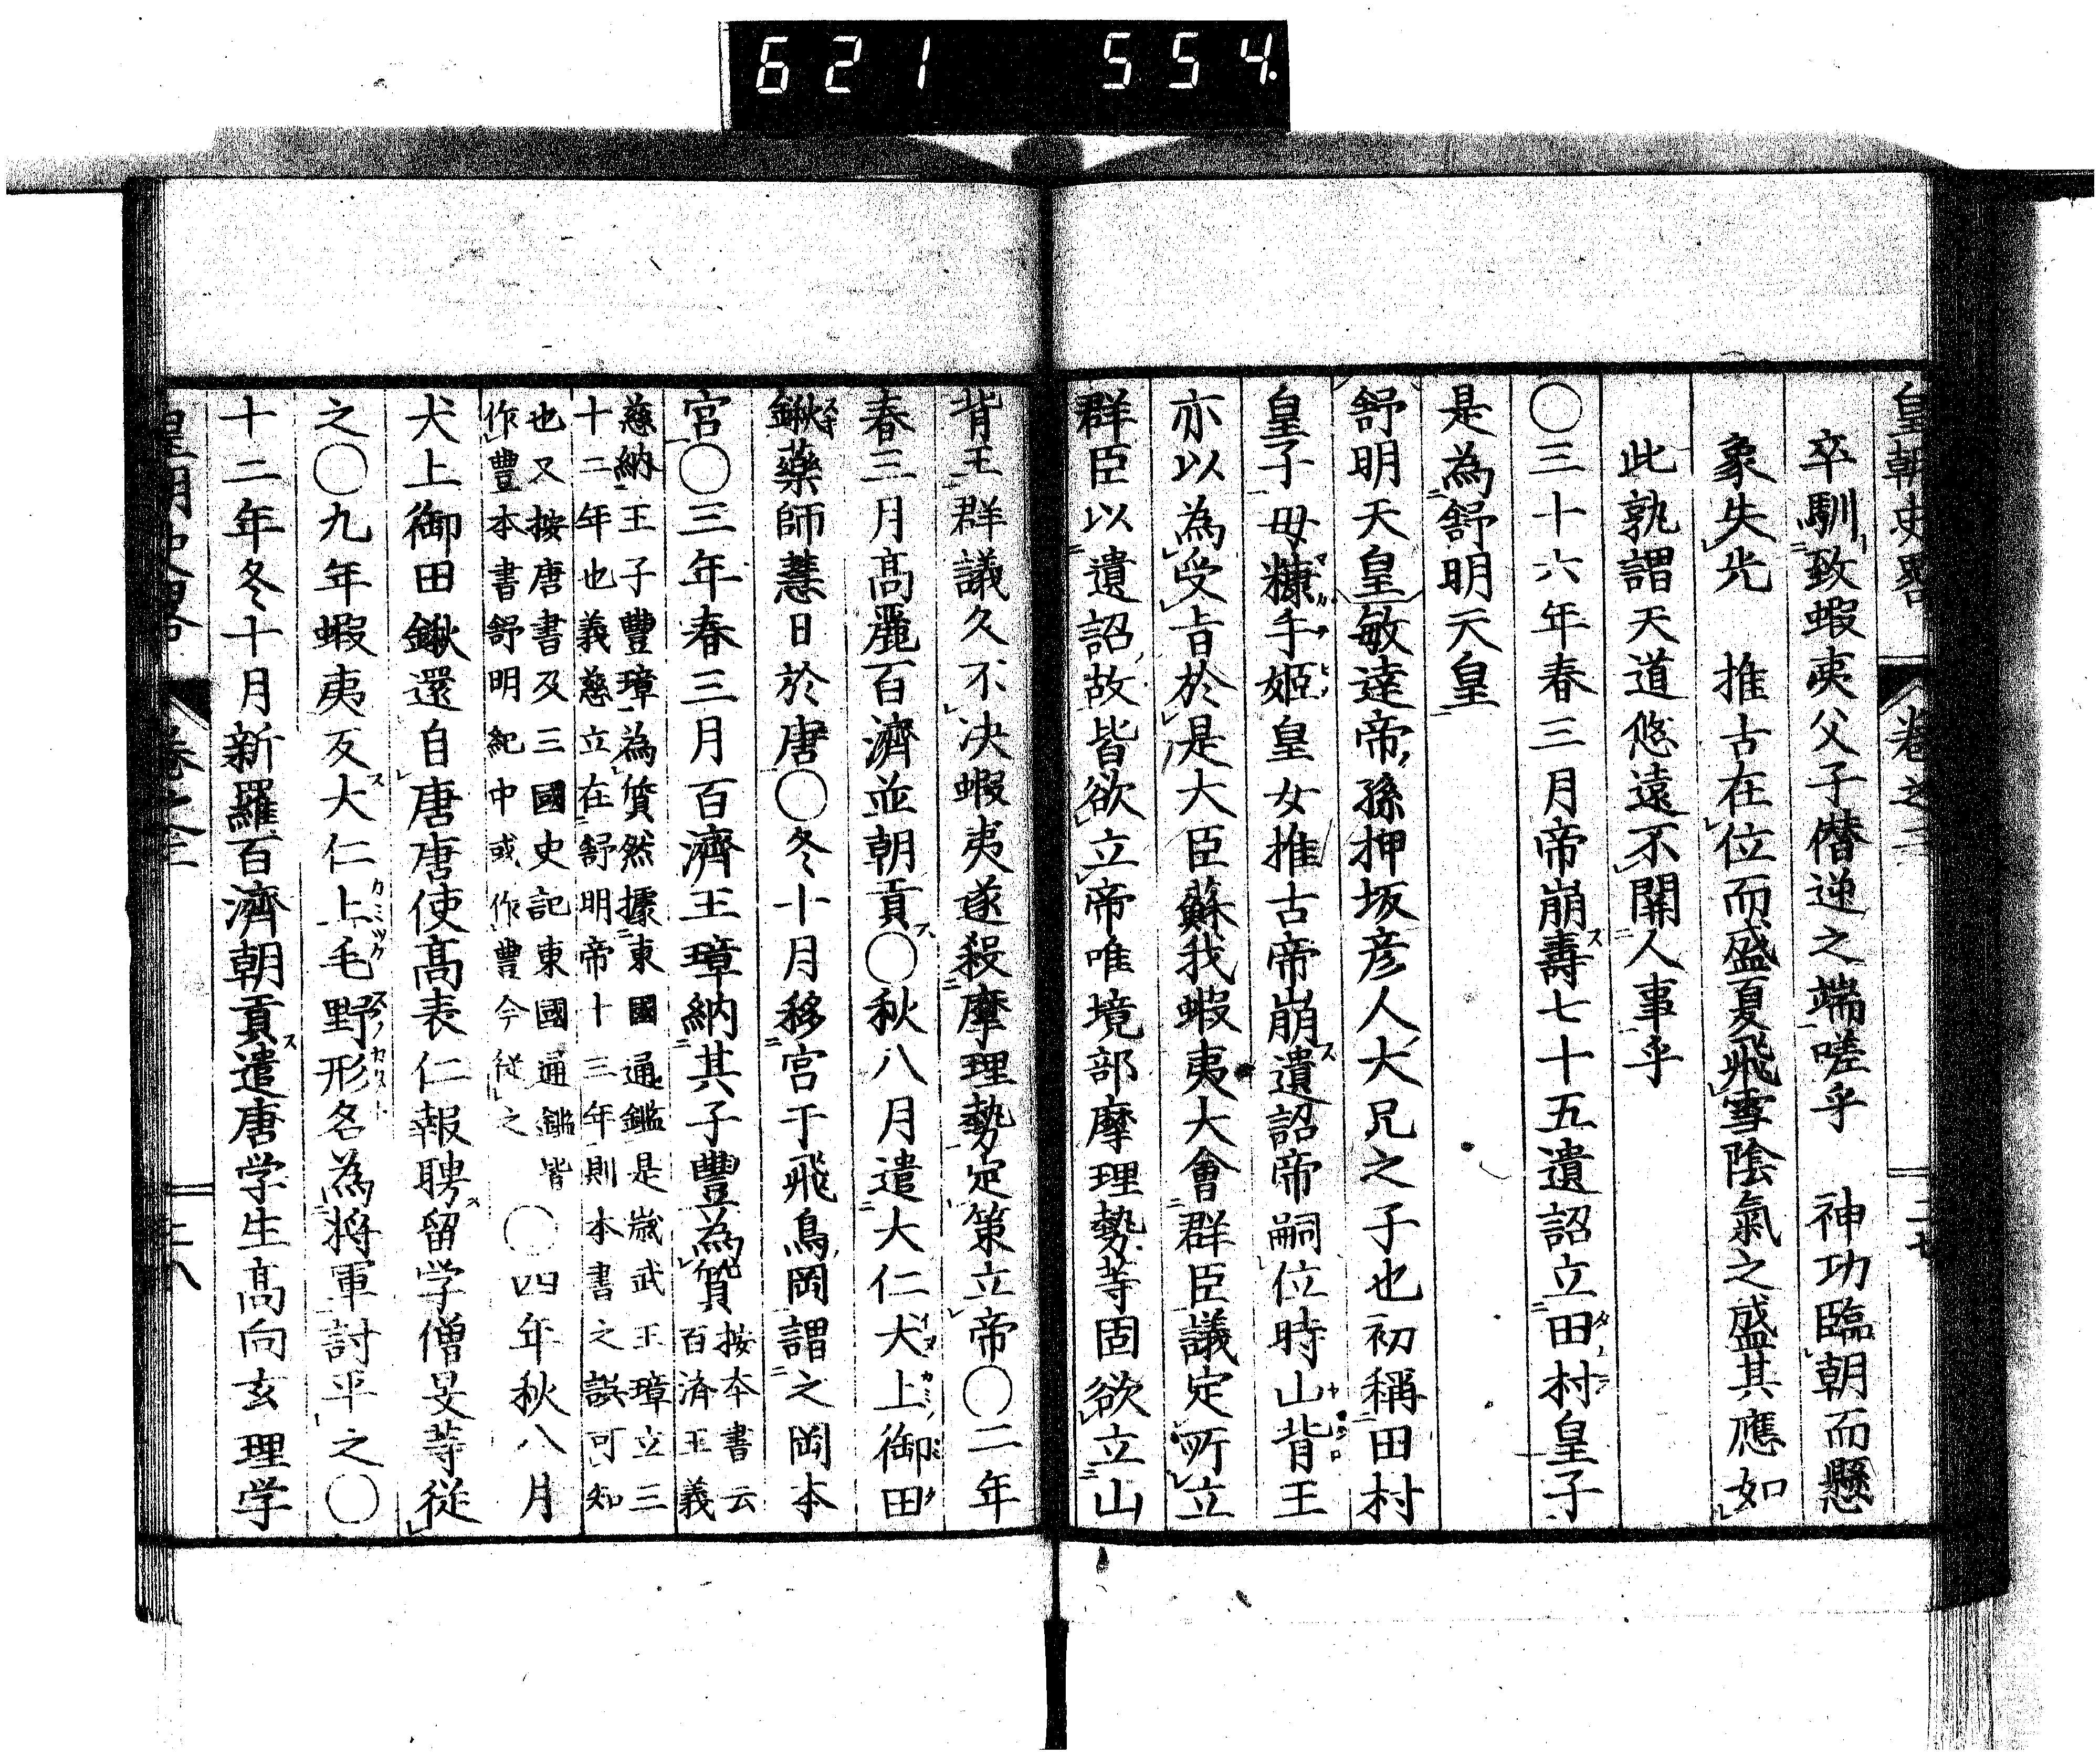 621 554.
皇朝史畧 卷之二
卒馴致蝦夷父子僭逆之端嗟乎 神功臨朝而懸
象失光 推古在位而盛夏飛雪陰氣之盛其應如
此孰謂天道悠遠不関人事乎
〇三十六年春三月帝崩壽七十五遺詔立田村皇子
是為舒明天皇
舒明天皇敏達帝孫押坂彦人大兄之子也初稱田村
皇子母糠手姬皇女推古帝崩遺詔帝嗣位時山背王
亦以為受旨於是大臣蘇我蝦夷大會群臣議定所立
群臣以遺詔故皆欲立帝唯境部摩理勢等固欲立山
背王群議久不決蝦夷遂殺摩理勢定策立帝〇二年
春三月高麗百濟並朝貢〇秋八月遣大仁犬上御田
鍬藥師慧日於唐〇冬十月移宮于飛鳥岡謂之岡本
宮〇三年春三月百濟王璋納其子豐為質按本書云
百済王義
慈納王子豐璋為質然據東國通鑑是歲武王璋立三
十二年也義慈立在舒明帝十三年則本書之誤可知
也又按唐書及三國史記東國通鑑皆
作豐本書舒明紀中或作豊今従之〇四年秋八月
犬上御田鍬還自唐唐使高表仁報聘留学僧旻等従
之〇九年蝦夷反大仁上毛野形名為將軍討平之〇
十二年冬十月新羅百濟朝貢遣唐学生高向玄理学
皇朝史畧 卷之二 二十八